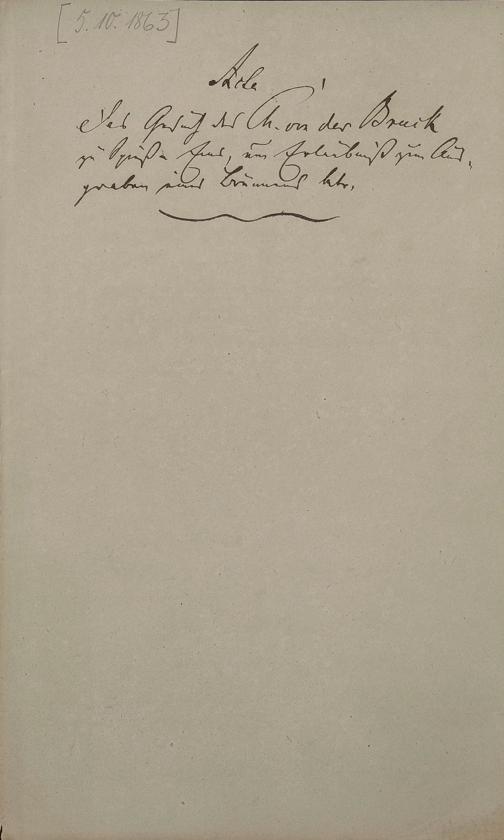 [5. 10. 1863]
Acta
Das Gesuch des Ch. von der Bruck
zu Spieß-Ems, um Erlaubniß zum Aus-
graben eines Brunnens betr.